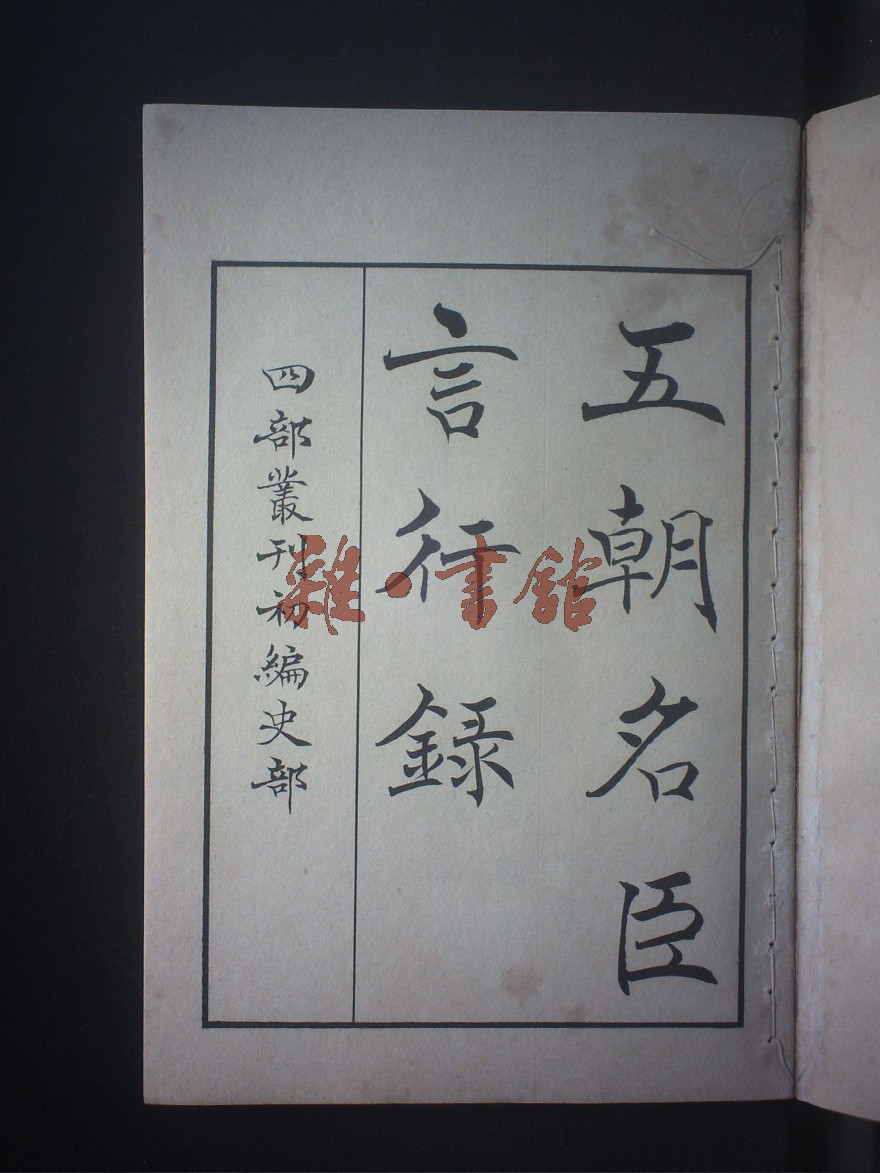 五朝名臣
言行錄
四部叢刊初編史部
雜·書館